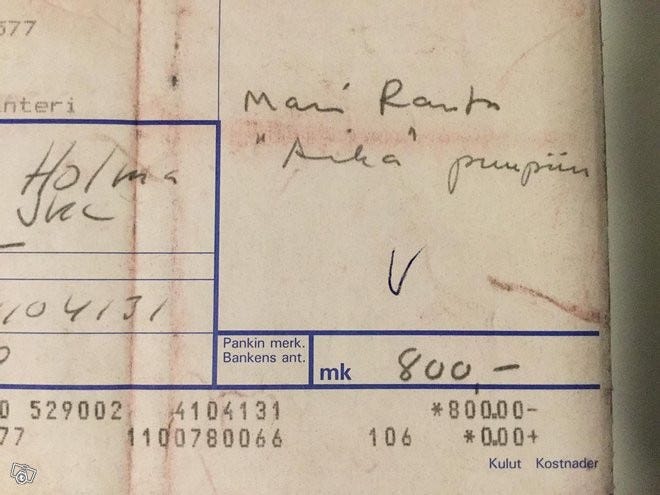 577
nteri
Mari Ranta
"Aika" puupiin
Holma
JKL
V
104131
Pankin merk.
Bankens ant.
mk 800,-
0 529002 4104131 *800.00-
77 1100780066 106 *0.00+
Kulut Kostnader